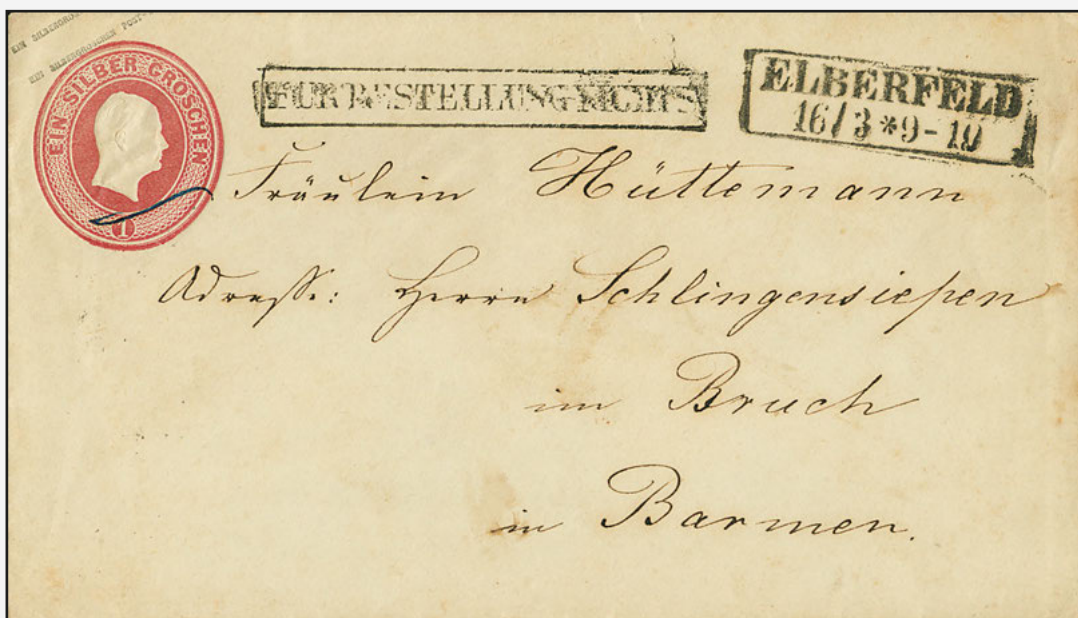 EIN SILBERGROSCHEN
EIN SILBERGROSCHEN POST-
EIN SILBER GROSCHEN
1
FÜR BESTELLUNG NICHTS
ELBERFELD
16/3 * 9-10
Fräulein Hüttemann
Adresse: Herrn Schlingensiepen
im Bruch
in Barmen.